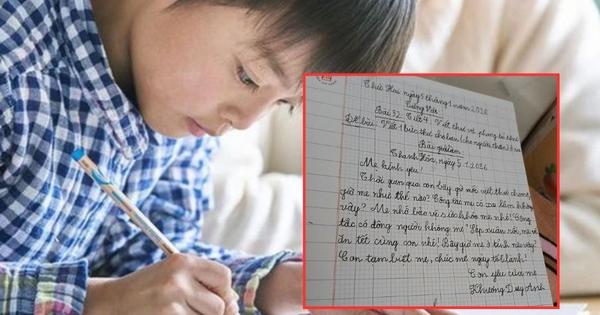 Thứ Hai ngày 5 tháng 1 năm 2026
Tiếng Việt
Bài 32: Tiết 4: Viết thư và phong bì thư
Đề bài: Viết 1 bức thư cho bạn (cho người thân)
Bài giải
Thanh Hóa, ngày 5.1.2026
Mẹ kính yêu!
Thời gian qua con bây giờ mới viết thư chưng
giờ mẹ như thế nào? Công tác mẹ có xa lắm không
vậy? Mẹ nhớ bảo vệ sức khỏe mẹ nhé! Công
tác có đông người không mẹ? Sắp xuân rồi, mẹ về
ăn tết cùng con nhé! Bây giờ mẹ ở tỉnh nào vậy?
Con tạm biệt mẹ, chúc mẹ ngày tốt lành!
Con yêu của mẹ
Khương Duy Anh